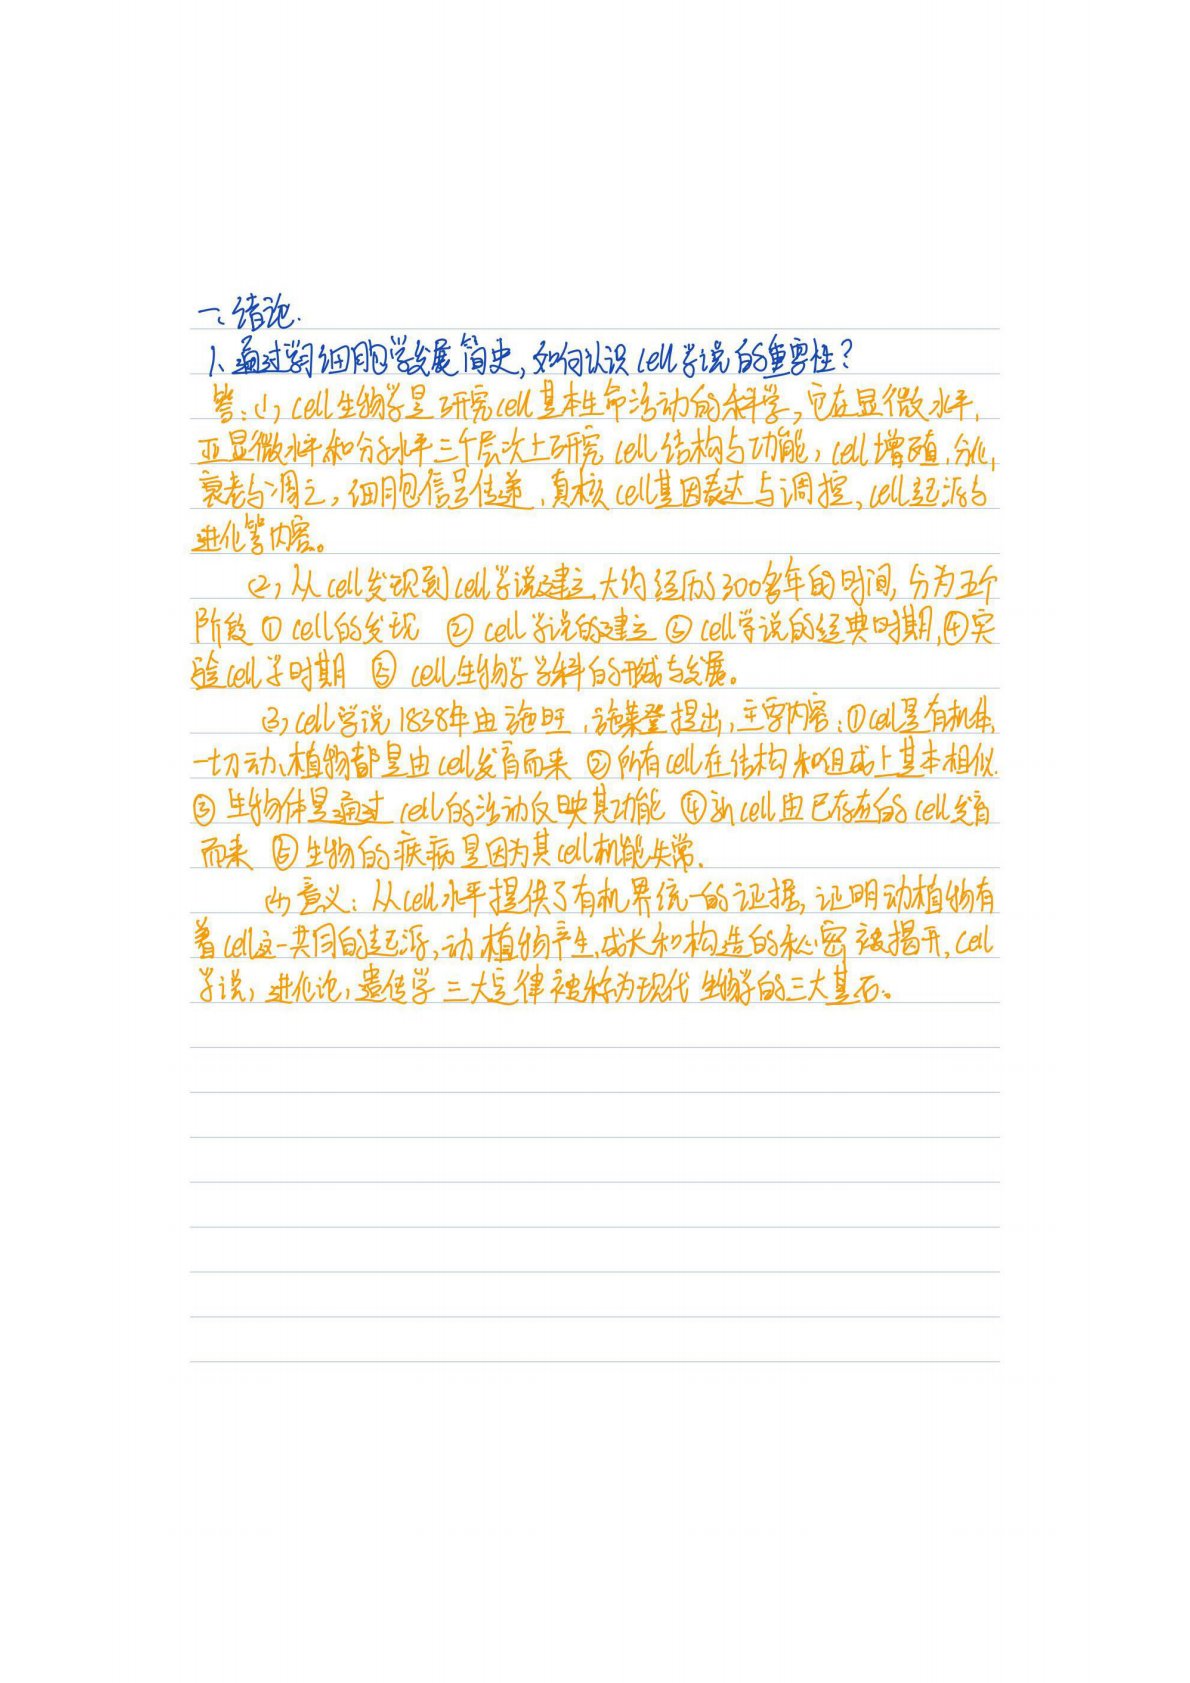 一、绪论.
1、通过学习细胞学发展简史,如何认识cell学说的重要性?
答:(1)cell生物学是研究cell基本生命活动的科学,它在显微水平,
亚显微水平和分子水平三个层次上研究cell结构与功能,cell增殖,分化,
衰老与凋亡,细胞信号传递,真核cell基因表达与调控,cell起源与
进化等内容。
(2)从cell发现到cell学说建立,大约经历了300多年的时间,分为五个
阶段①cell的发现 ②cell学说的建立③cell学说的经典时期,④实
验cell学时期 ⑤cell生物学学科的形成与发展。
(3)cell学说1838年由施旺,施莱登提出,主要内容:①cell是有机体,
一切动、植物都是由cell发育而来 ②所有cell在结构和组成上基本相似.
③生物体是通过cell的活动反映其功能 ④新cell由已存在的cell发育
而来 ⑤生物的疾病是因为其cell机能失常.
(4)意义:从cell水平提供了有机界统一的证据,证明动植物有
着cell这一共同的起源,动植物产生,成长和构造的秘密被揭开,cell
学说,进化论,遗传学三大定律被称为现代生物学的三大基石。